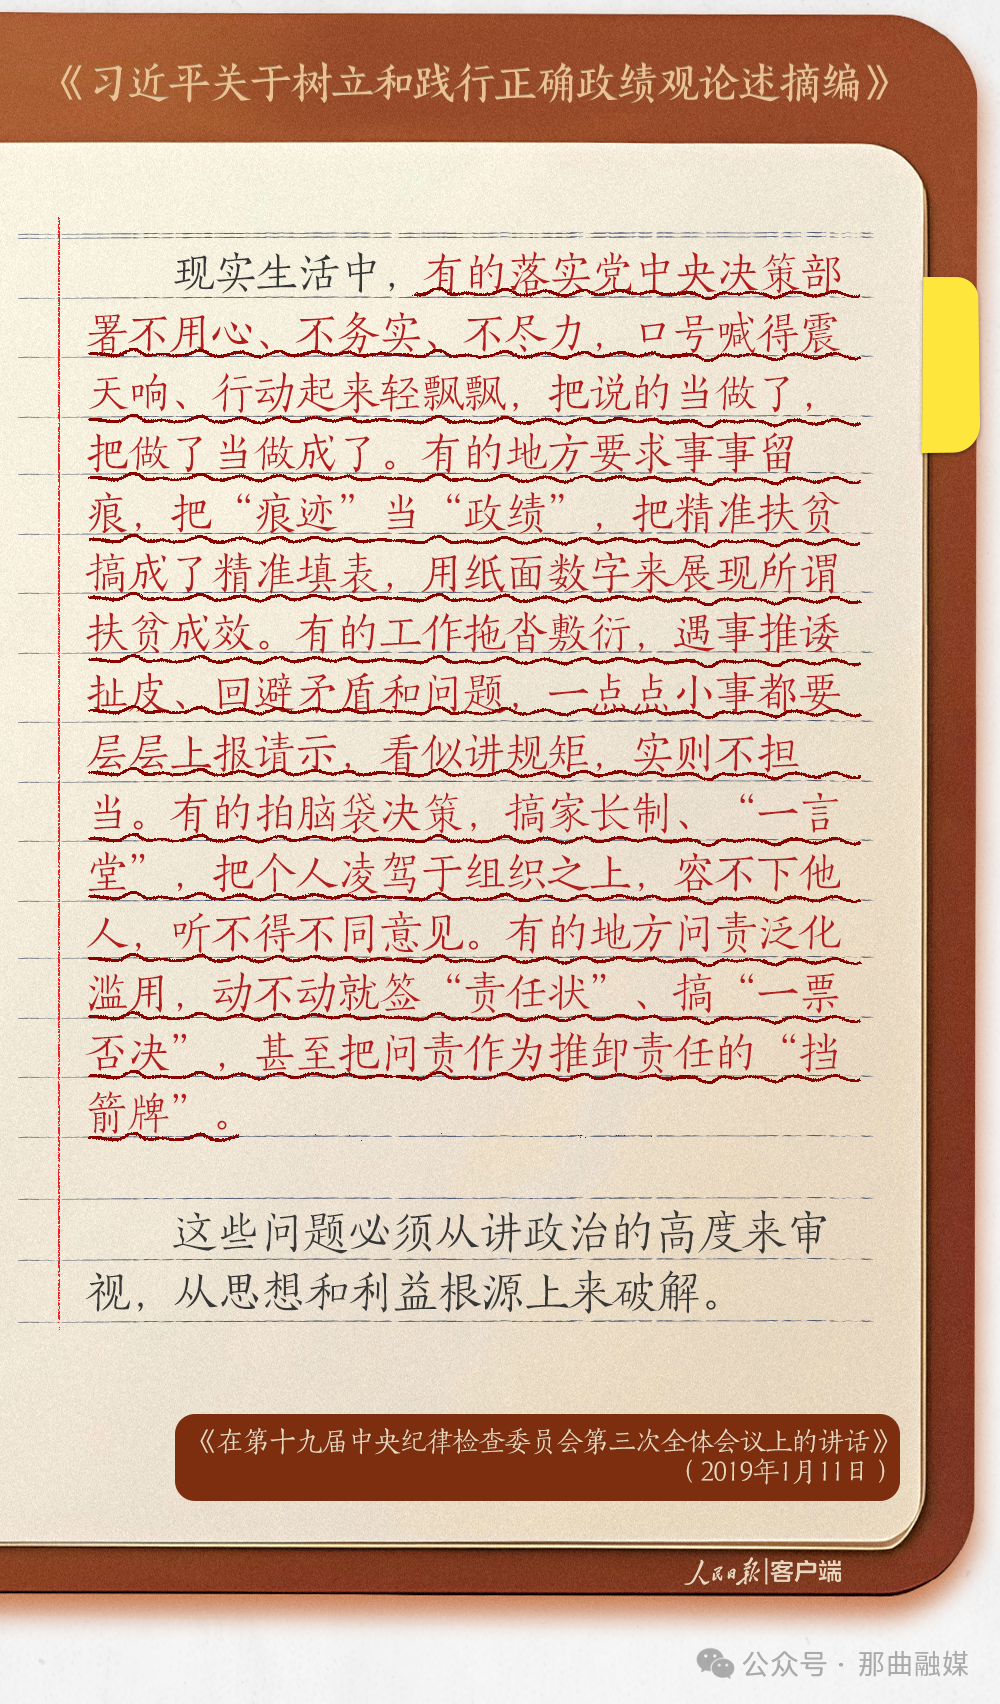 《习近平关于树立和践行正确政绩观论述摘编》
现实生活中，有的落实党中央决策部
署不用心、不务实、不尽力，口号喊得震
天响、行动起来轻飘飘，把说的当做了，
把做了当做成了。有的地方要求事事留
痕，把“痕迹”当“政绩”，把精准扶贫
搞成了精准填表，用纸面数字来展现所谓
扶贫成效。有的工作拖沓敷衍，遇事推诿
扯皮、回避矛盾和问题，一点点小事都要
层层上报请示，看似讲规矩，实则不担
当。有的拍脑袋决策，搞家长制、“一言
堂”，把个人凌驾于组织之上，容不下他
人，听不得不同意见。有的地方问责泛化
滥用，动不动就签“责任状”、搞“一票
否决”，甚至把问责作为推卸责任的“挡
箭牌”。
这些问题必须从讲政治的高度来审
视，从思想和利益根源上来破解。
《在第十九届中央纪律检查委员会第三次全体会议上的讲话》
（2019年1月11日）
人民日报|客户端
公众号·那曲融媒